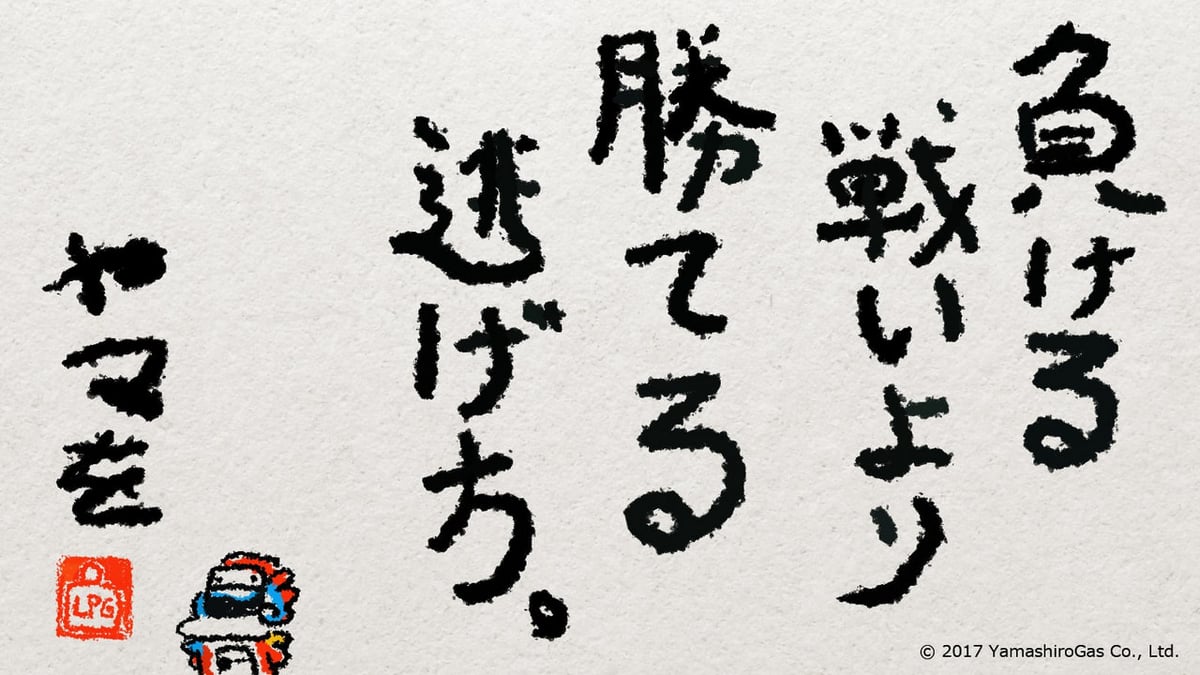 負ける
戦いより
勝てる
逃げ方。
ヤマを
LPG
© 2017 YamashiroGas Co., Ltd.